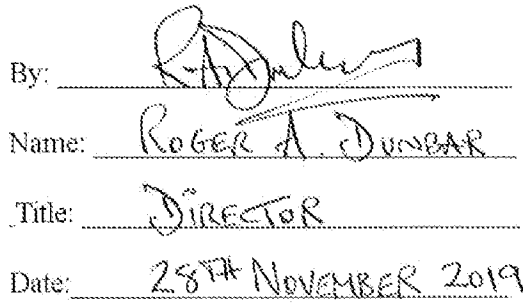 By: R. A. Dunbar
Name: ROGER A. DUNBAR
Title: DIRECTOR
Date: 28TH NOVEMBER 2019